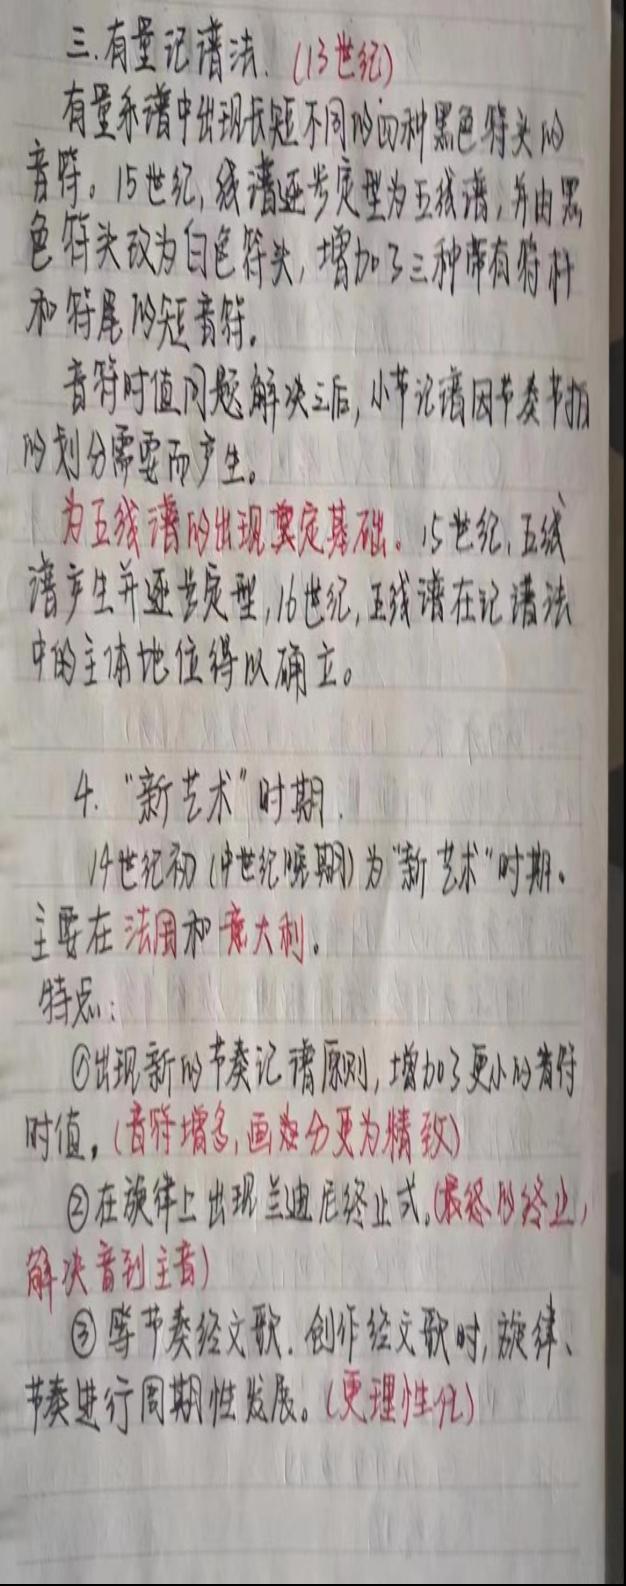 三.有量记谱法.(13世纪)
有量记谱中出现长短不同的四种黑色符头的
音符。15世纪,线谱逐步定型为五线谱,并由黑
色符头改为白色符头,增加了三种带有符杆
和符尾的短音符。
音符时值问题解决之后,小节记谱因节奏节拍
的划分需要而产生。
为五线谱的出现奠定基础。15世纪,五线
谱产生并逐步定型,16世纪,五线谱在记谱法
中的主体地位得以确立。
4."新艺术"时期.
14世纪初(中世纪晚期)为"新艺术"时期。
主要在法国和意大利。
特点:
①出现新的节奏记谱原则,增加了更小的音符
时值。(音符增多,划分更为精致)
②在旋律上出现兰迪尼终止式。(最终的终止,
解决音到主音)
③等节奏经文歌.创作经文歌时,旋律、
节奏进行周期性发展。(更理性化)